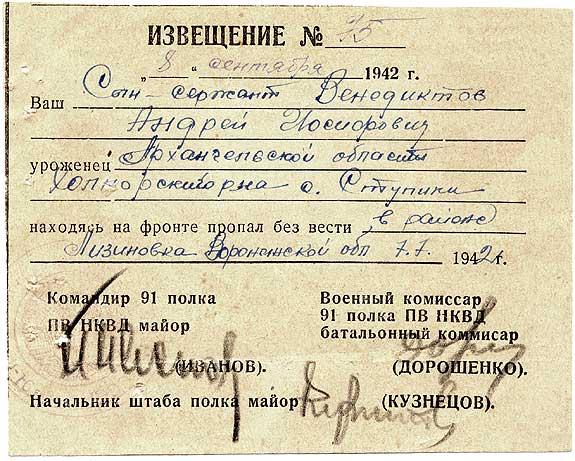 ИЗВЕЩЕНИЕ № 75
„ 8 “ сентября 1942 г.
Ваш Сын-сержант Венедиктов
Андрей Иосифович
уроженец Архангельской области
с. Ступники
находясь на фронте пропал без вести в районе
Лизиновка Воронежской обл 7.7. 1942 г.
Командир 91 полка
ПВ НКВД майор
(ИВАНОВ).
Военный комиссар
91 полка ПВ НКВД
батальонный коммисар
(ДОРОШЕНКО).
Начальник штаба полка майор (КУЗНЕЦОВ).